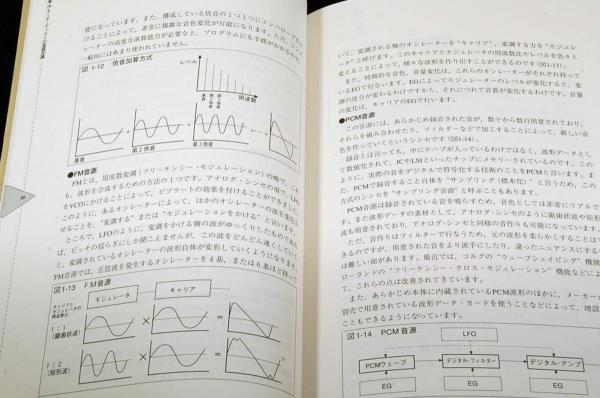 能になっています。また、構成している倍音の1つ1つにエンベロープをか
けることによって、非常に複雑な音色変化が可能になります。ただ、コンピュ
ーターの高度な演算能力が必要な上、プログラムにも手間がかかるので、
一般的にはあまり使われていません。
図1-12 倍音加算方式
レベル
基音
第2倍音
第3倍音
周波数
基音
第2倍音
第3倍音
●FM音源
FMとは、周波数変調(フリーケンシー・モジュレーション)の略で、これ
も、波形を合成するための方法の1つです。アナログ・シンセの項で、LFO
をVCOにかけることによって、ビブラートの効果を付けることができました。
このように、あるオシレーターによって、ほかのオシレーターの波を変化さ
せることを、"変調する"または"モジュレーションをかける"と言います。
ところで、LFOのように、変調をかける側の波がゆっくりしたものであれ
ば、ピッチの揺らぎにしか聞こえませんが、この波をどんどん速くしていく
と、変調されているオシレーターの波形自体が変形していくようになります。
FM音源では、正弦波を発生するオシレーターを4基、または6基ほど持って
図1-13 FM音源
モジュレータ
キャリア
1:1
(鋸歯状波)
1:2
(矩形波)
いて、変調される側のオシレーターを"キャリア"、変調する方を"モジュレ
ータ"と呼びます。このキャリアとモジュレータの周波数比やレベルを色々と
変えることによって、様々な波形を作り出すことができるのです(図1-13)。
また、時間的な音色、音量変化は、これらのオシレーターがそれぞれ持って
いるEGで行ないます。EGによってモジュレータのレベルが変化すると、変
調の度合が変わるわけですから、それにつれて音質が変化するわけです。音量
の変化は、キャリアのEGで行います。
●PCM音源
この音源には、あらかじめ録音された音が、数十から数百用意されており、
それらを組み合わせたり、フィルターなどで加工することによって、新しい音
色を作っていくというシンセです(図1-14)。
録音とは言っても、中にテープが入っているわけではなく、波形データとし
て数値化されて、ICやLSIといったチップにメモリーされているのです。この
ように、実際の音をデジタルで符号化する技術のことをPCMと言います。ま
た、PCMで録音すること自体を"サンプリング(標本化)"と言うため、この
方式のシンセを"サンプリング音源"と呼ぶこともあります。
PCM音源は録音されている音を鳴らすため、音色としては非常にリアルで
す。また波形データの素材として、アナログ・シンセのように鋸歯状波や矩形
波も用意されており、アナログ・シンセと同様の音作りも可能になっています。
ただ、音作りはフィルターで行なうため、元の波形を柔らかくすることはで
きるのですが、用意された音をより派手にしたり、違ったニュアンスにするの
は難しい面があります。最近では、コルグの"ウェーブシェイピング"機能、
ローランドの"フリーケンシー・クロス・モジュレーション"機能などによっ
て、これらの点は改善されてきています。
また、あらかじめ本体に内蔵されているPCM波形のほかに、メーカーから
別売で用意されている波形データ・カードを使うことなどによって、増設する
こともできるようになっています。
図1-14 PCM音源
LFO
PCMウェーブ
デジタル・フィルター
デジタル・アンプ
EG
EG
EG